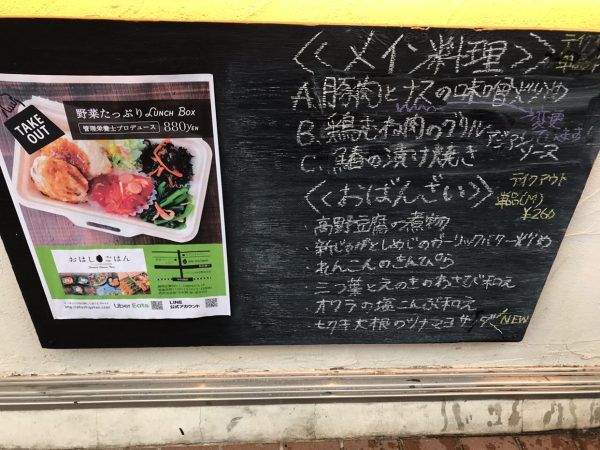 TAKE OUT
野菜たっぷり LUNCH BOX
管理栄養士プロデュース 880YEN
おはしごはん
Uber Eats
LINE
公式アカウント
《メイン料理》
A. 豚肉とナスの味噌炒め
B. 鶏むね肉のグリル
アジアンソース
C. 鰆の漬け焼き
《おばんざい》
テイクアウト
単品(M)
¥260
・高野豆腐の煮物
・新じゃがとしめじのガーリックバター炒め
・れんこんのきんぴら
・三つ葉とえのきのわさび和え
・オクラの塩こんぶ和え
・切干大根のツナマヨサラダ
NEW